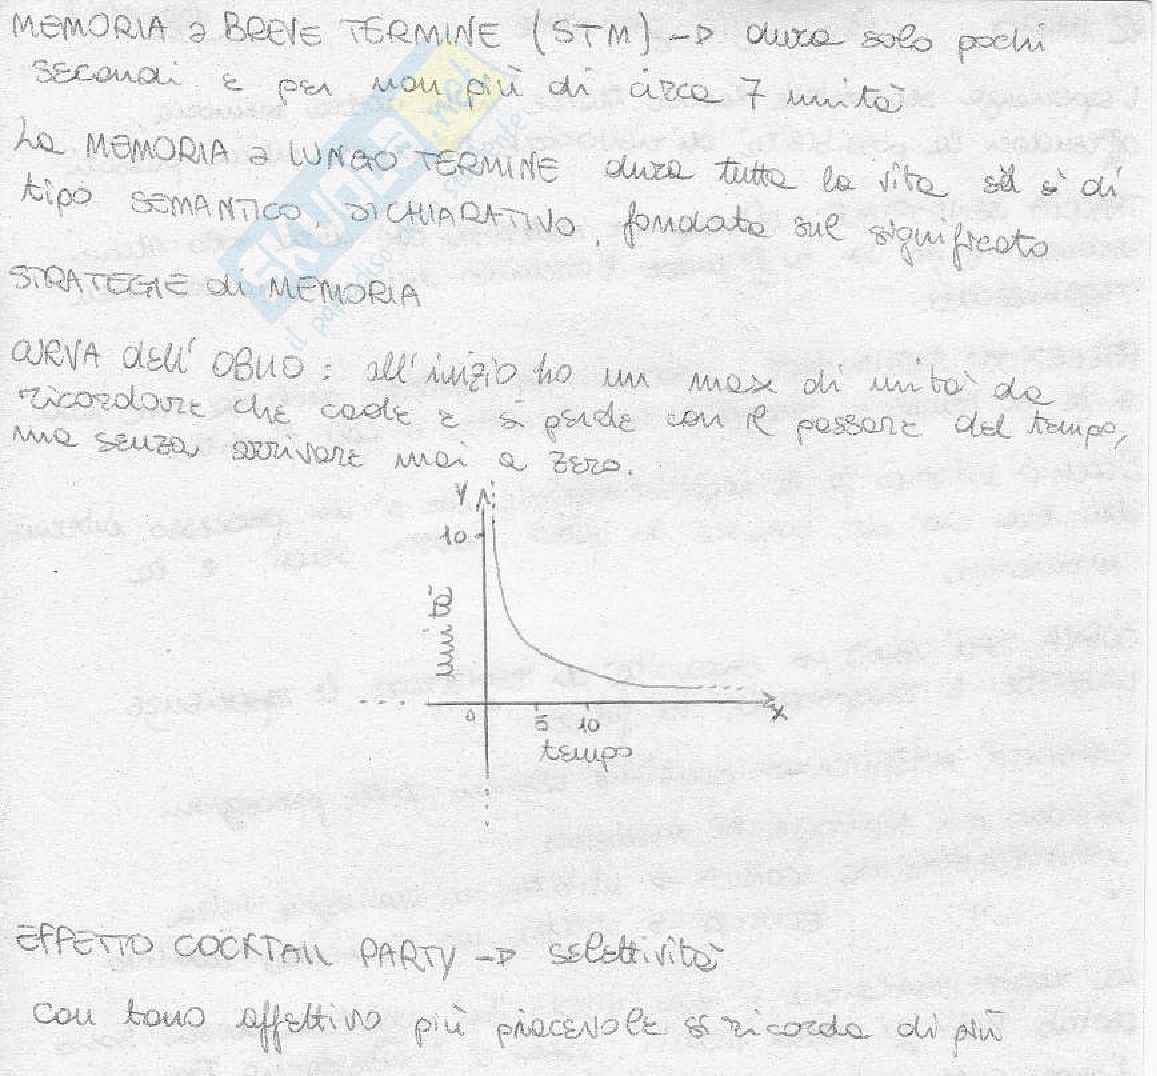 MEMORIA a BREVE TERMINE (STM) → dura solo pochi
secondi e per non più di circa 7 unità
La MEMORIA a LUNGO TERMINE dura tutta la vita ed è di
tipo SEMANTICO, DICHIARATIVO, fondata sul significato
STRATEGIE di MEMORIA
CURVA dell' OBLIO: all'inizio ho un max di unità da
ricordare che cade e si perde con il passare del tempo,
ma senza arrivare mai a zero.
Y
10
unità
0 5 10 X
tempo
EFFETTO COCKTAIL PARTY → selettività
con tono affettivo più piacevole si ricorda di più
SKUOLA.net
il paradiso dello studente